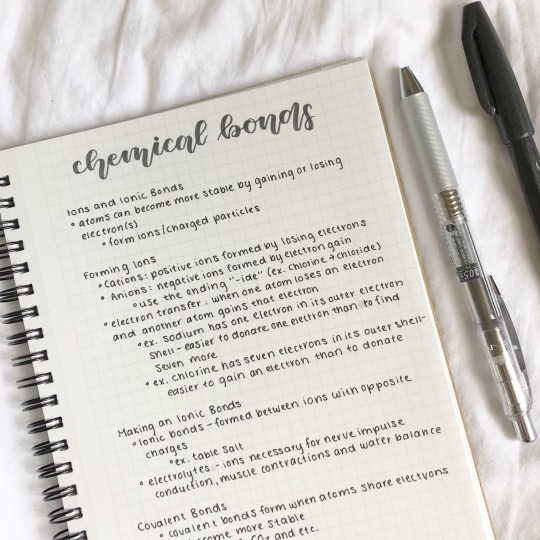 chemical bonds
Ions and Ionic Bonds
• atoms can become more stable by gaining or losing
electron(s)
• form ions/charged particles
Forming Ions
• Cations: positive ions formed by losing electrons
• Anions: negative ions formed by electron gain
• use the ending "-ide" (ex. chlorine → chloride)
• electron transfer: when one atom loses an electron
and another atom gains that electron
• ex. Sodium has one electron in its outer electron
shell - easier to donate one electron than to find
seven more
• ex. chlorine has seven electrons in its outer shell-
easier to gain an electron than to donate
Making an Ionic Bonds
• Ionic bonds - formed between ions with opposite
charges
• ex. table salt
• electrolytes - ions necessary for nerve impulse
conduction, muscle contractions and water balance
Covalent Bonds
• covalent bonds form when atoms share electrons
become more stable
CO₂ and etc.